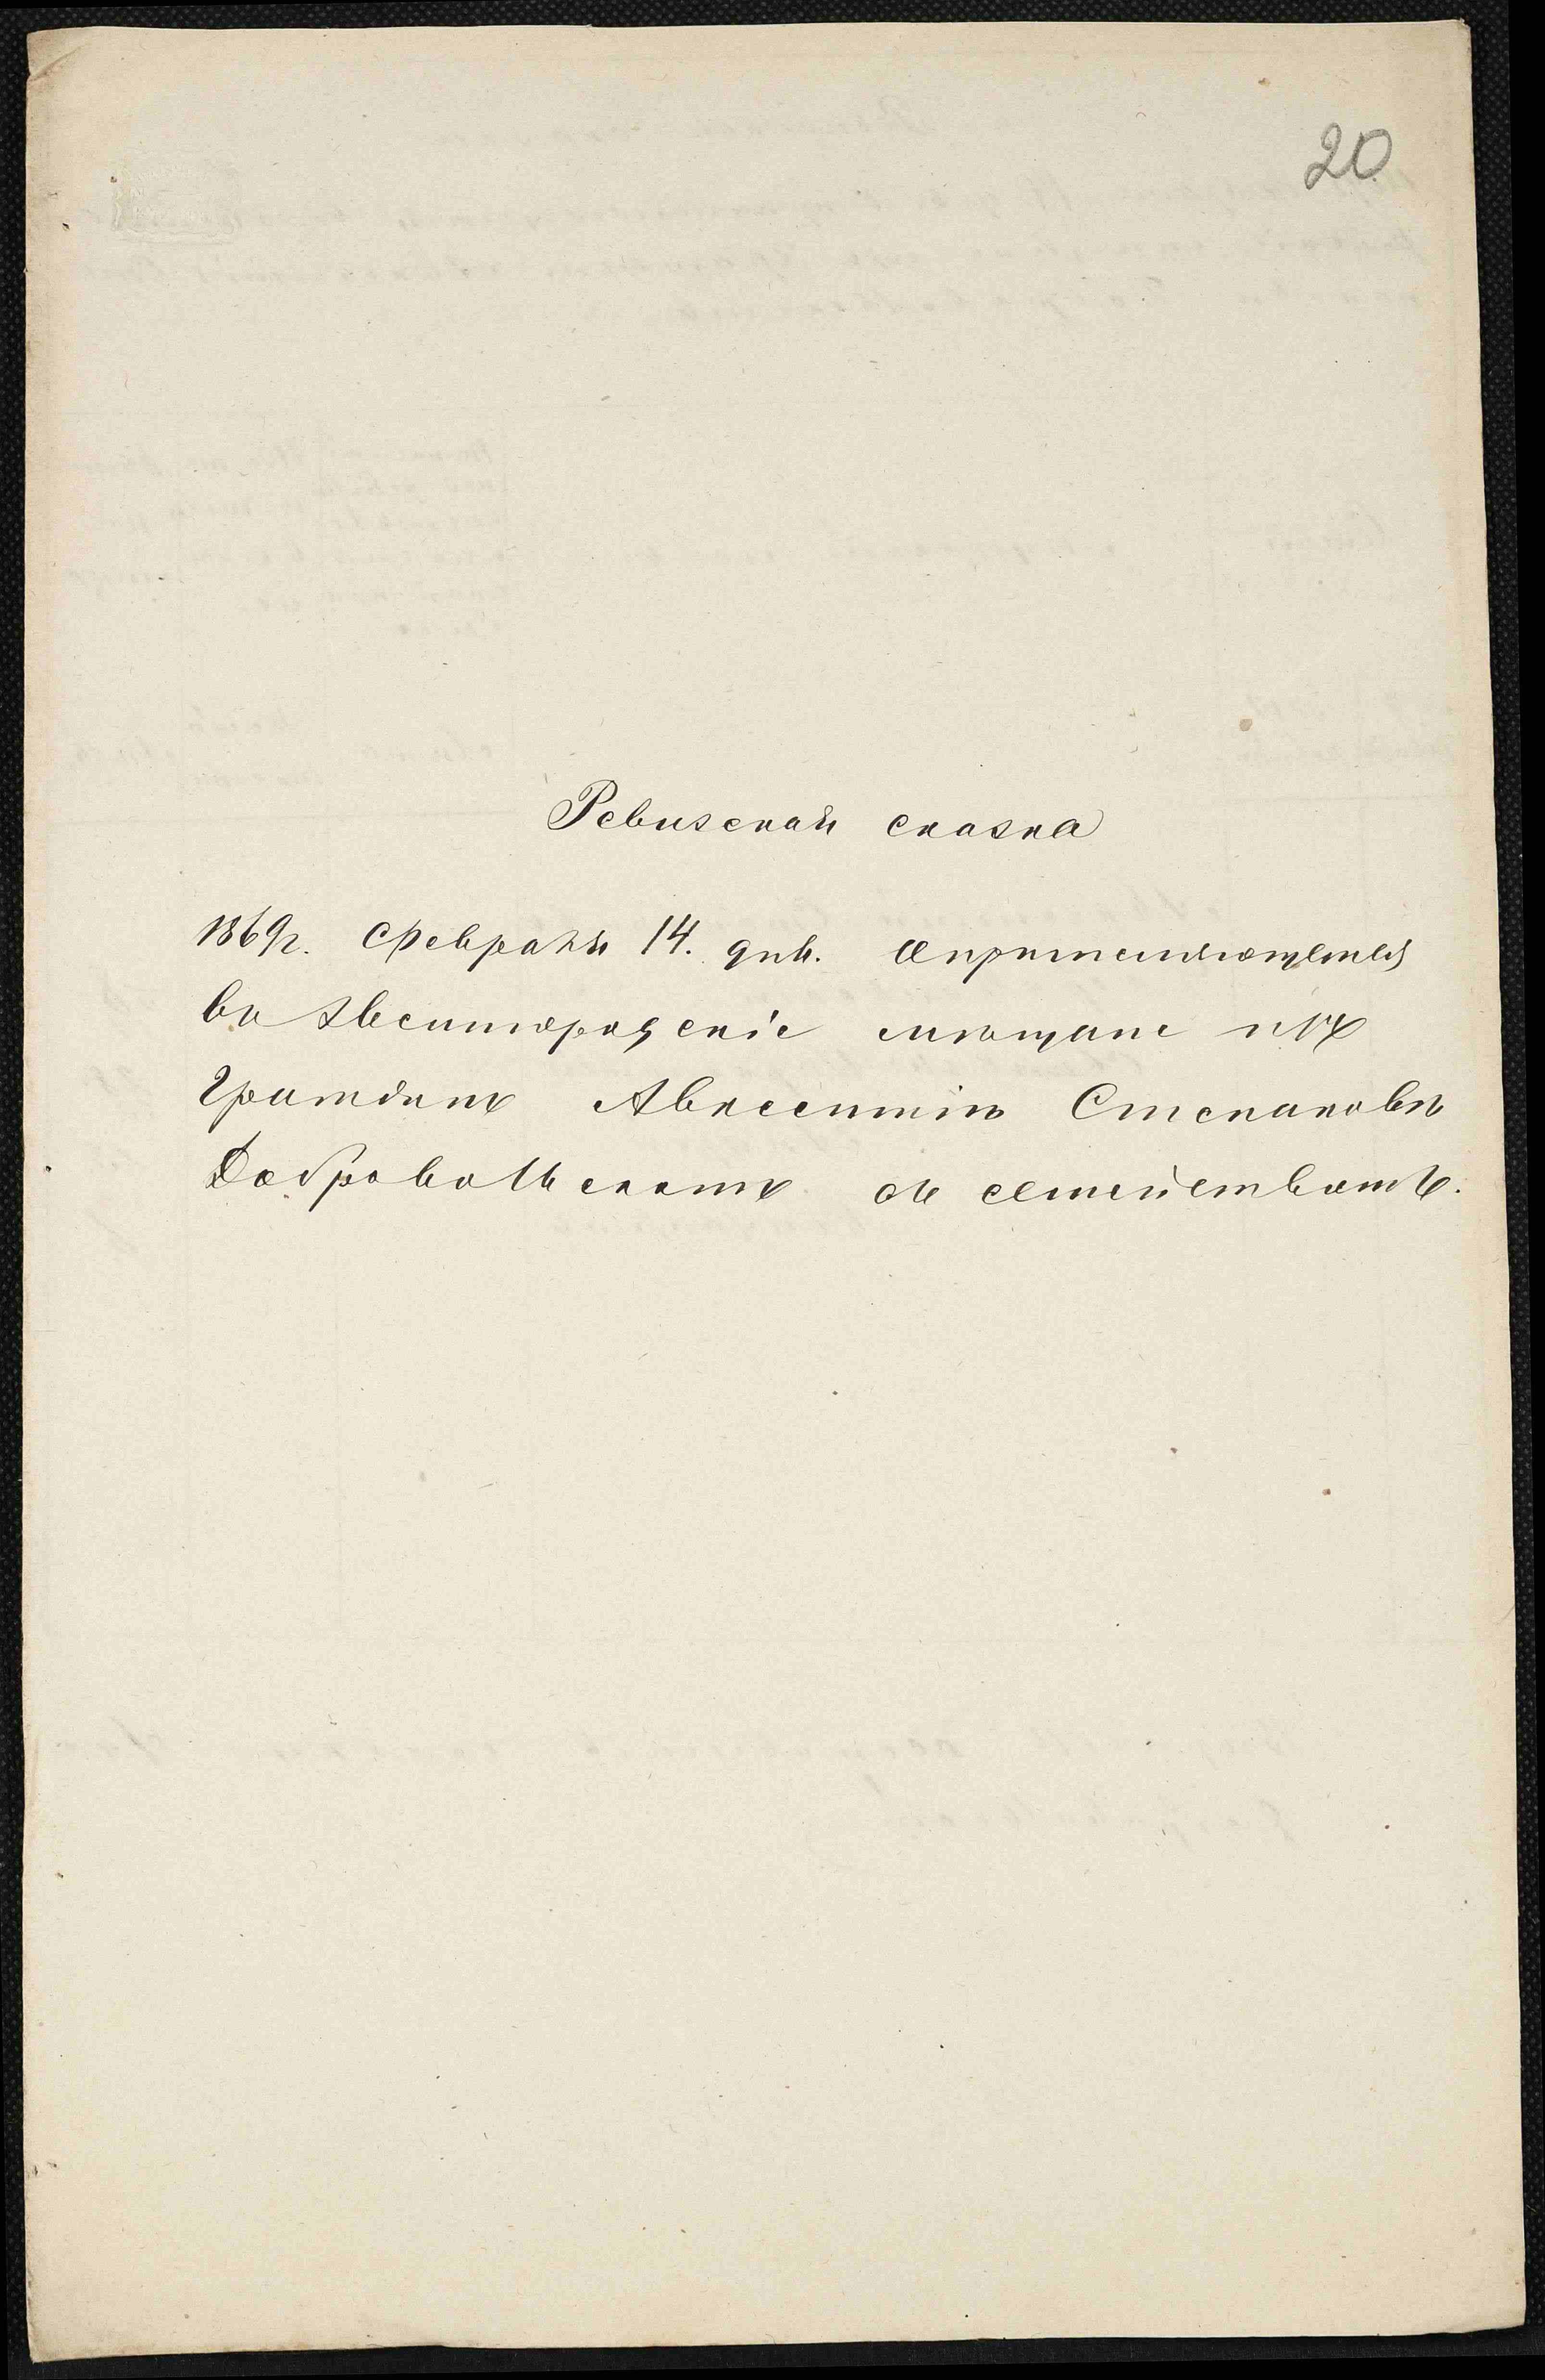 20
Ревизская сказка
1869г. Февраля 14. дня. о причисляющемся
во Елисаветградскіе мѣщане изъ
Граждан Авксентіѣ Степановѣ
Добровольскомъ съ семействомъ.